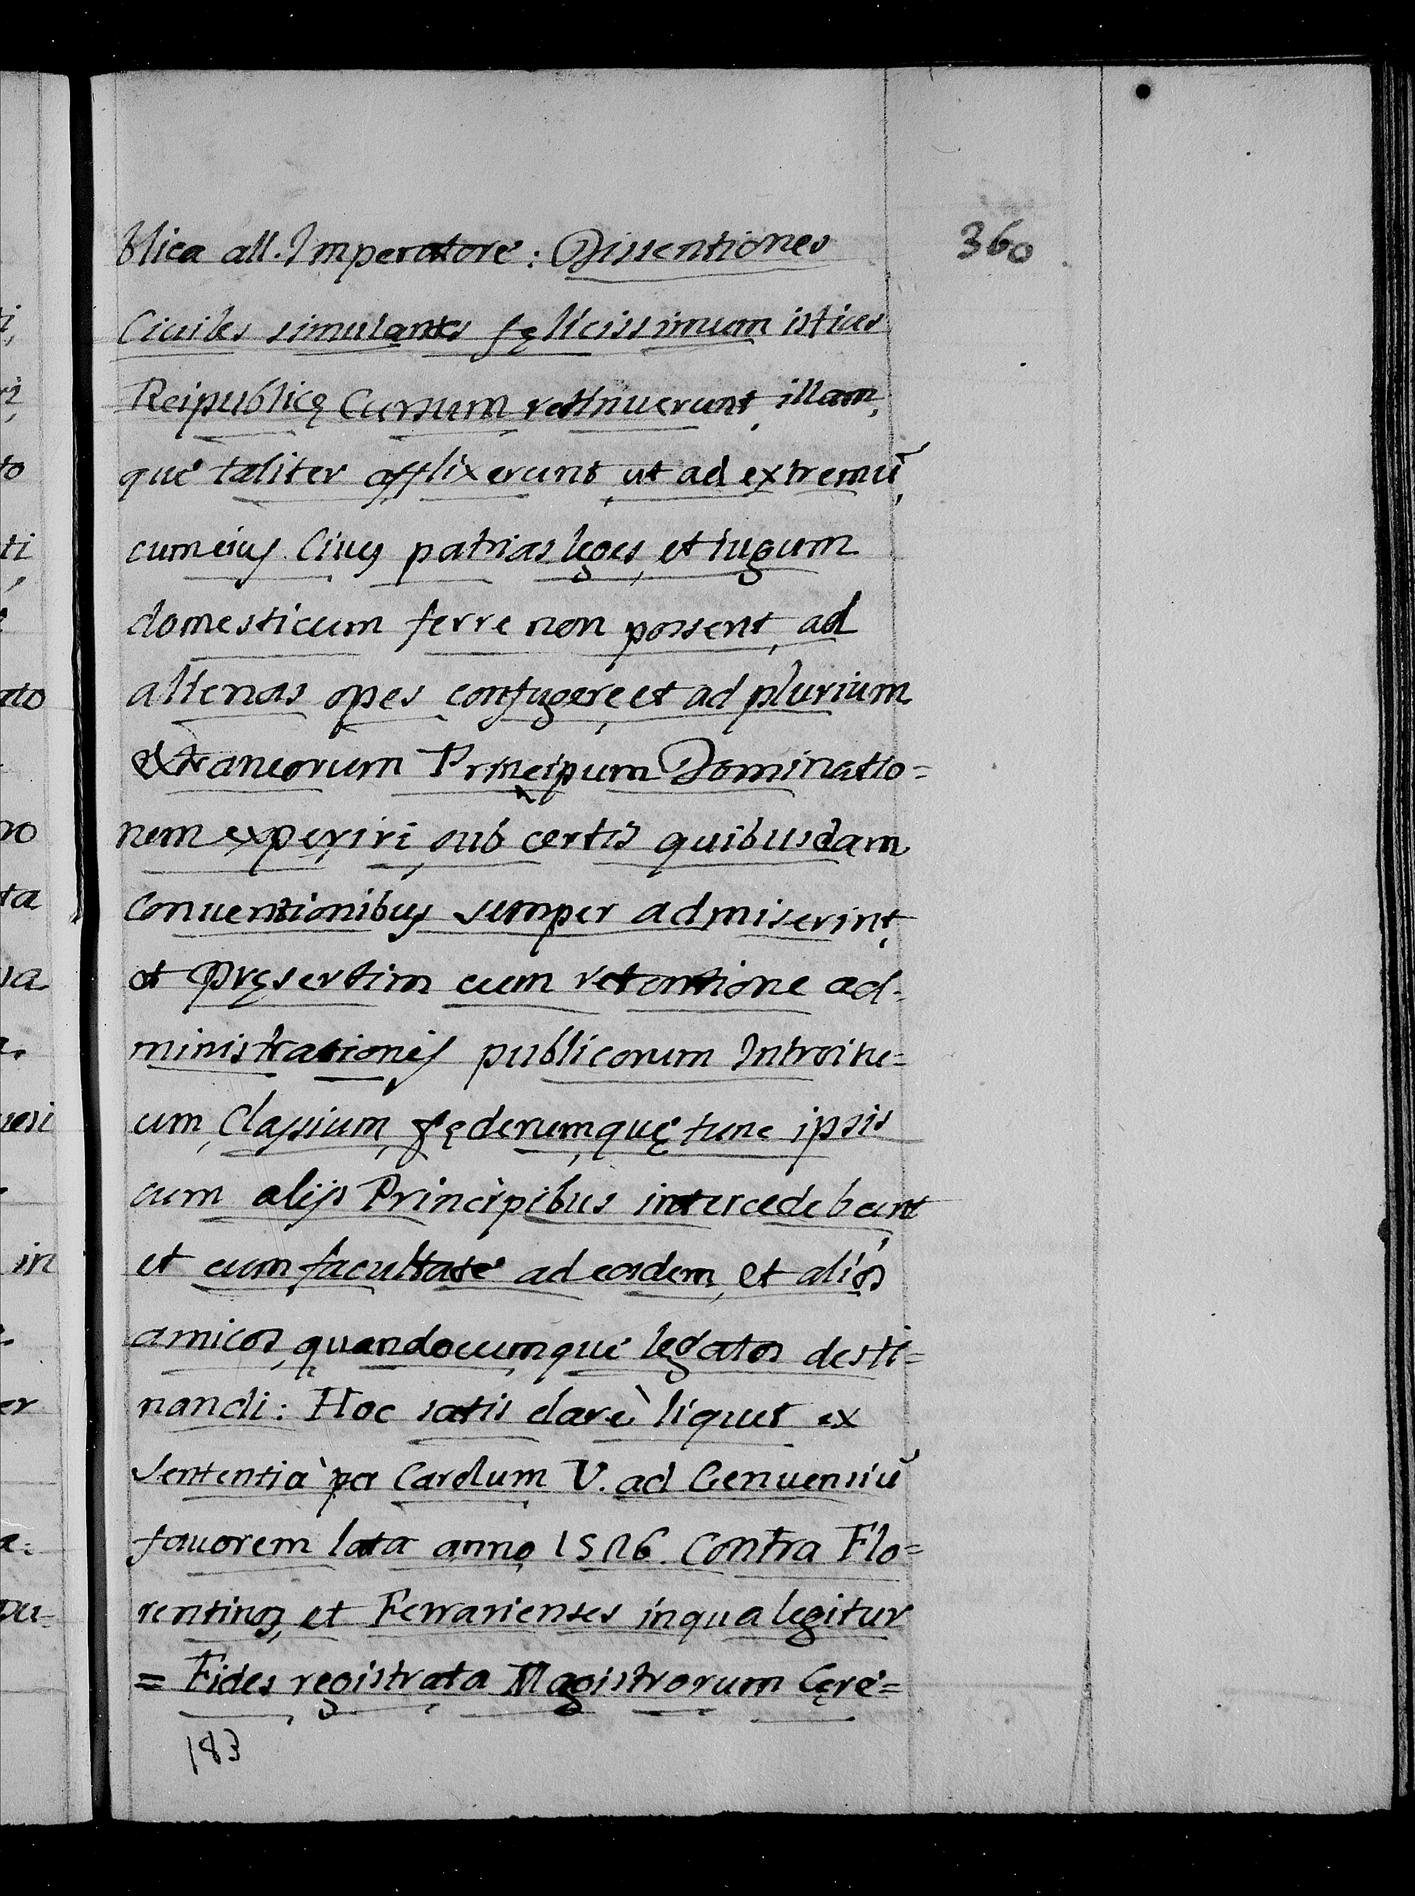 blica all. Imperatore: Dissentiones
360
Ciuiles simulants fęlicissimum istius
Reipublicę Cursum retinuerunt, illam,
que taliter afflixerunt, ut ad extremũ,
cum eius Ciues patrias leges, et iugum
domesticum ferre non possent, ad
alienas opes confugere, et ad plurium
extraneorum Principum Dominatio=
nem experiri, sub certis quibusdam
conuentionibus semper admiserint,
et pręsertim cum retentione ad=
ministrationis publicorum Introitu=
um, Classium, fęderumquę, tunc ipsis
cum alijs Principibus intercedebant
et cum facultate ad eosdem, et alios
amicos, quandocumque legatos desti=
nandi: Hoc satis clarè liquet ex
Sententia per Carolum V. ad Genuensiũ
fauorem lata anno 1526. Contra Flo=
rentinos, et Ferrarienses in qua legitur
= Fides registrata Magistrorum Cęre=
183